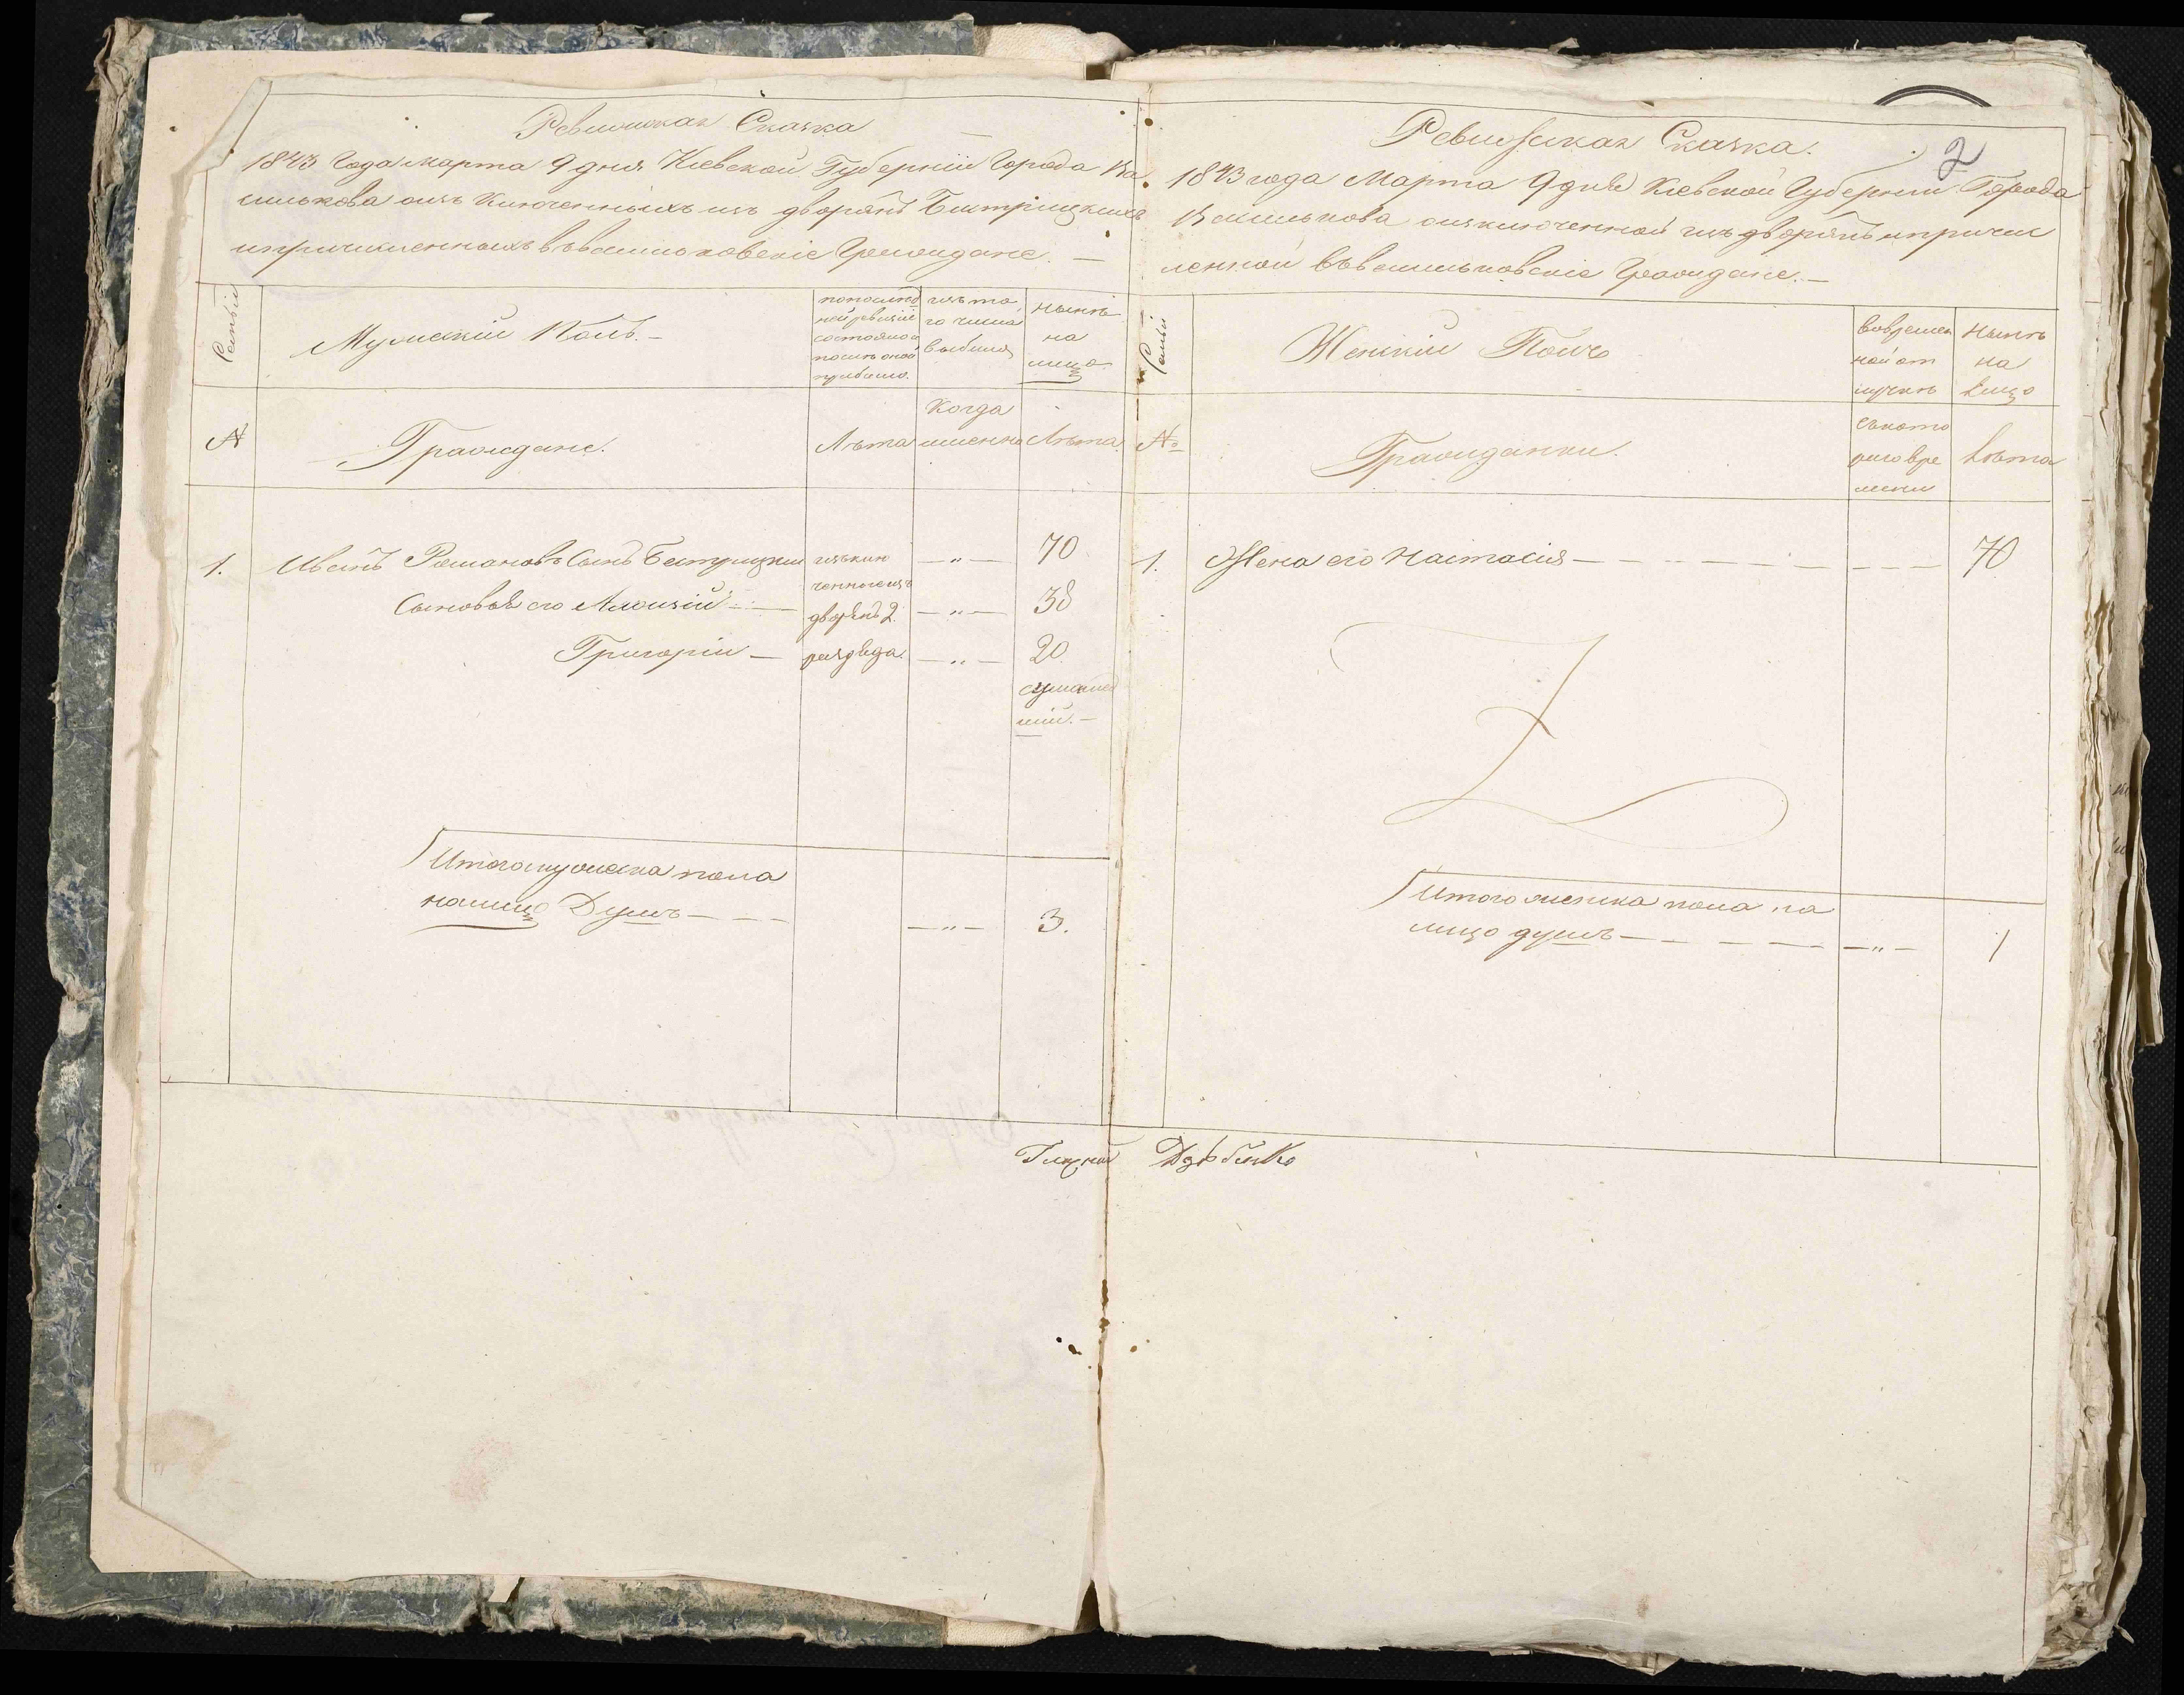 Ревижская Сказка
1843 Года марта 9 дня Кіевской Губерніи Города Ва
силькова изъ Ключенныхъ изъ дворянъ Быстрицкихъ
ипричисленныхъ въ васильковскіе Граждане. —
Семьи
Мужескій Полъ. —
попослѣд
ней ревизіи
состояло и
послѣ оной
прибыло.
изъ то
го числа
выбыло
нынѣ
на
лицо
№
Граждане.
Лѣта
Когда
именно
Лѣта.
1. Иванъ Романовъ Сынъ Быстрицкій изъклю — „ — 70
ченные изъ
Сыновья его Алоизій — дворянъ 2. — „ — 38
Григорій — разряда. — „ — 20.
сумашед
шій. —
Итого мужеска пола
налицо Душъ — — — — „ — 3.
2
Ревижская Сказка.
1843 года Марта 9 дня Кіевской Губерніи Города
Василькова изключенной изъ дворянъ ипричис
ленной въ васильковскіе Граждане. —
Семьи
Женскій Полъ
вовремен
ной от
лучкѣ
Нынѣ
на
Лицо
№
Гражданки.
съкото
раго вре
мени
Лѣта
1. Жена его Настасія — — — — — 70
Итого женска пола на
лицо душъ — — — — — „ — 1
Гласной